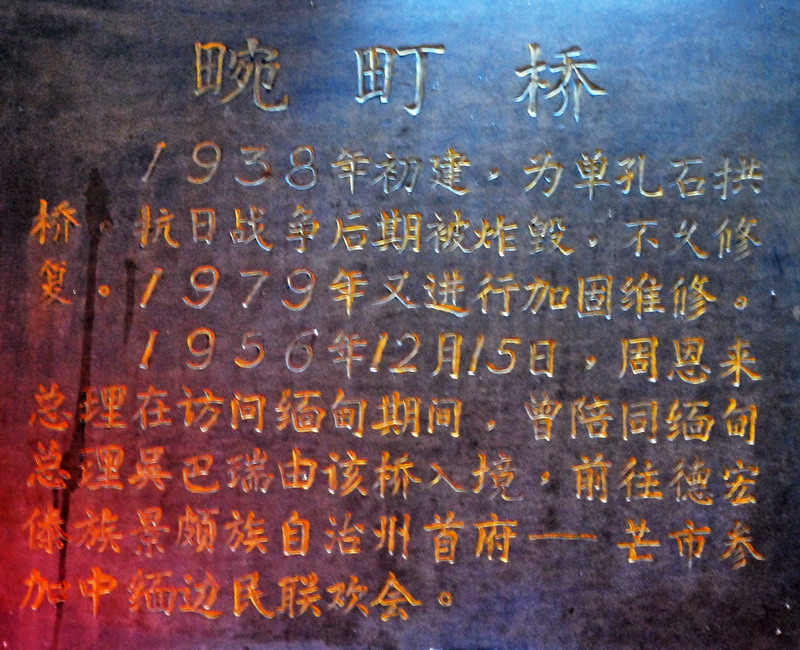 畹町桥
1938年初建，为单孔石拱
桥。抗日战争后期被炸毁，不久修
复。1979年又进行加固维修。
1956年12月15日，周恩来
总理在访问缅甸期间，曾陪同缅甸
总理吴巴瑞由该桥入境，前往德宏
傣族景颇族自治州首府——芒市参
加中缅边民联欢会。